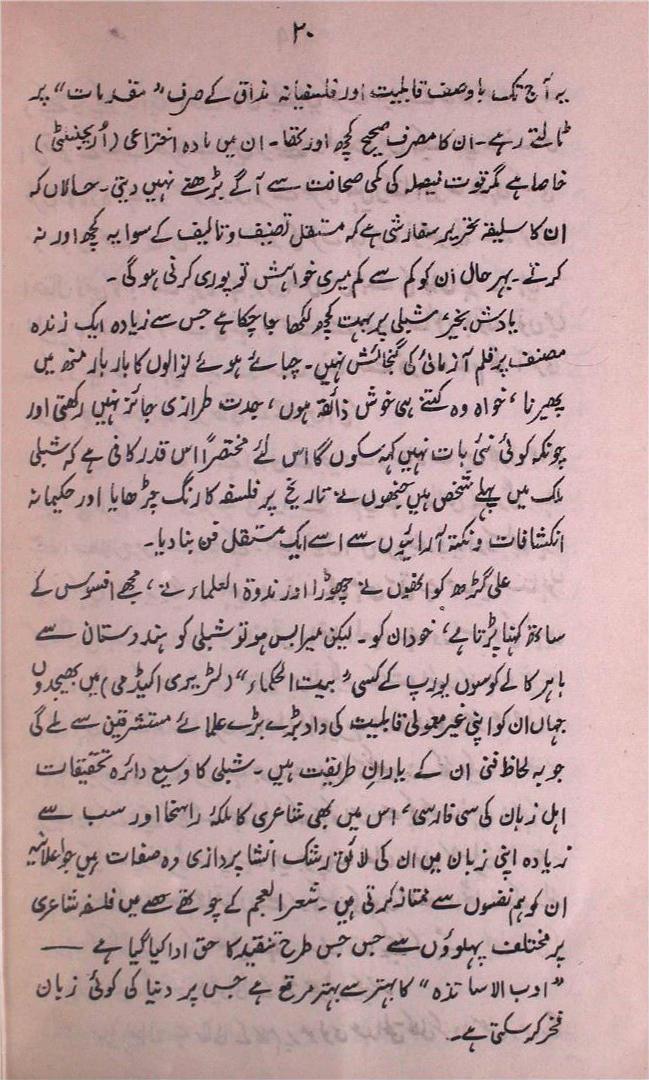 ۲۰
یہ آج تک باوصف قابلیت اور فلسفیانہ مذاق کے صرف "مقدمات" پر
ٹالتے رہے۔ ان کا مصرف صحیح کچھ اور تھا۔ ان میں مادہ اختراعی (اُریجنلٹی)
خاصا ہے مگر قوت فیصلہ کی کمی صحافت سے آگے بڑھنے نہیں دیتی۔ حالاں کہ
ان کا سلیقہ تحریر سفارشی ہے کہ مستقل تصنیف و تالیف کے سوا یہ کچھ اور نہ
کرتے۔ بہر حال ان کو کم سے کم میری خواہش تو پوری کرنی ہوگی۔
یادش بخیر، شبلی پر بہت کچھ لکھا جا چکا ہے جس سے زیادہ ایک زندہ
مصنف پر قلم آزمائی کی گنجائش نہیں۔ چبائے ہوئے نوالوں کا بار بار منھ میں
پھیرنا، خواہ وہ کتنے ہی خوش ذائقہ ہوں، جدت طرازی جائز نہیں رکھتی اور
چونکہ کوئی نئی بات نہیں کہہ سکوں گا اس لئے مختصراً اس قدر کافی ہے کہ شبلی
ملک میں پہلے شخص ہیں جنھوں نے تاریخ پر فلسفہ کا رنگ چڑھایا اور حکیمانہ
انکشافات و نکتہ آرائیوں سے اسے ایک مستقل فن بنا دیا۔
علی گڑھ کو انھوں نے چھوڑا اور ندوۃ العلماء نے، مجھے افسوس کے
ساتھ کہنا پڑتا ہے، خود ان کو۔ لیکن میرا بس ہو تو شبلی کو ہندوستان سے
باہر کالے کوسوں یورپ کے کسی "بیت الحکماء" (لٹریری اکیڈمی) میں بھیجدوں
جہاں ان کو اپنی غیر معمولی قابلیت کی داد بڑے بڑے علمائے مستشرقین سے ملے گی
جو بہ لحاظ فنی ان کے یارانِ طریقت ہیں۔ شبلی کا وسیع دائرہ تحقیقات
اہل زبان کی سی فارسی، اس میں بھی شاعری کا ملکۂ راسخا اور سب سے
زیادہ اپنی زبان میں ان کی لائق رشک انشا پردازی وہ صفات ہیں جو اعلانیہ
ان کو ہم نفسوں سے ممتاز کرتی ہیں۔ شعر العجم کے چوتھے حصے میں فلسفہ شاعری
پر مختلف پہلوؤں سے جس جس طرح تنقید کا حق ادا کیا گیا ہے ——
"ادب الاساتذہ" کا بہتر سے بہتر مرقع ہے جس پر دنیا کی کوئی زبان
فخر کر سکتی ہے۔